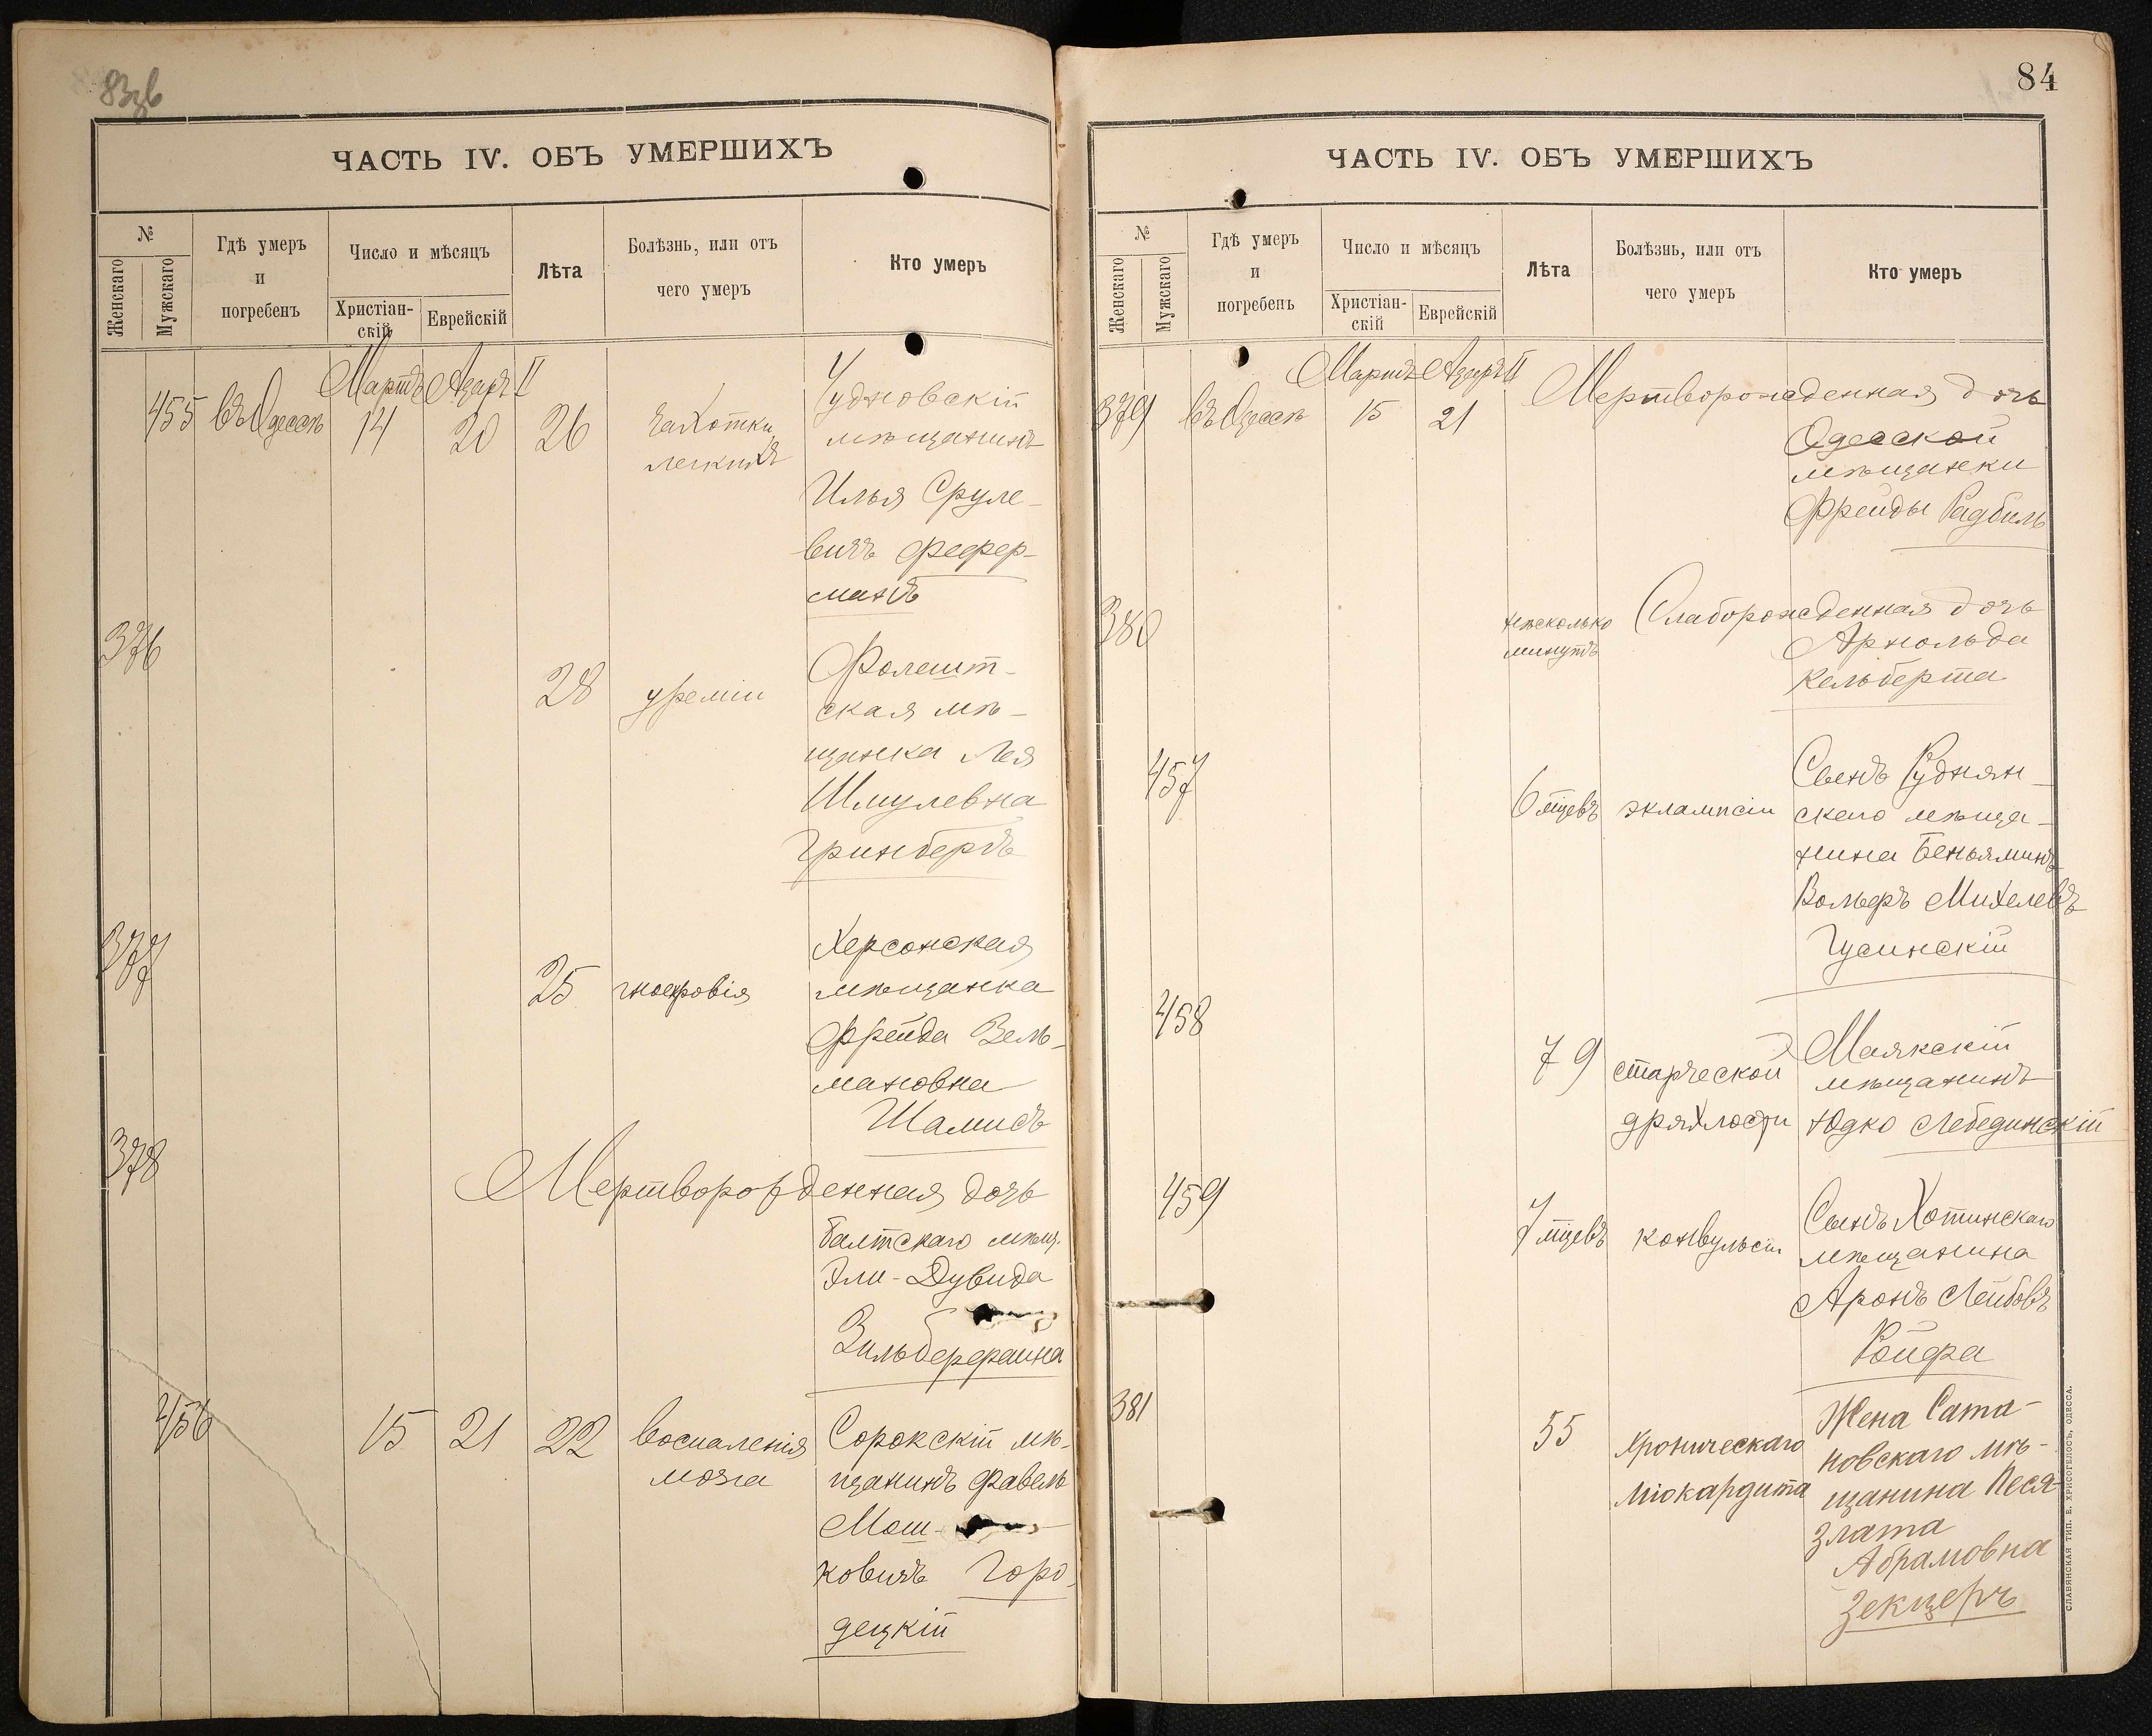 83зв
ЧАСТЬ IV. ОБЪ УМЕРШИХЪ
№
Женскаго
Мужскаго
Гдѣ умеръ
и
погребенъ
Число и мѣсяцъ
Христіан-
скій
Еврейскій
Лѣта
Болѣзнь, или отъ
чего умеръ
Кто умеръ
Мартъ Адаръ II
455 въ Одессѣ 14 20 26
чахотки
легкихъ
Чудновскій
мѣщанинъ
Илья Сруле-
вичъ Фефер-
манъ
376
28 уреміи
Фолешт-
ская мѣ-
щанка Лея
Шмулевна
Гринбергъ
377
25 гноекровія
Херсонская
мѣщанка
Фрейда Зель-
мановна
Шамисъ
378
Мертворожденная дочь
Балтскаго мѣщ.
Эли-Дувида
Зильберфаина
456 15 21 22
воспаленія
мозга
Сорокскій мѣ-
щанинъ Фавель
Мош-
ковичъ Горо-
децкій
84
ЧАСТЬ IV. ОБЪ УМЕРШИХЪ
№
Женскаго
Мужскаго
Гдѣ умеръ
и
погребенъ
Число и мѣсяцъ
Христіан-
скій
Еврейскій
Лѣта
Болѣзнь, или отъ
чего умеръ
Кто умеръ
Мартъ Адаръ II
379 въ Одессѣ 15 21
Мертворожденная дочь
Одесской
мѣщанки
Фрейды Радбиль
380
нѣсколько
минутъ
Слаборожденная дочь
Арнольда
Кельберта
457
6 мцевъ эклампсіи
Сынъ Руднян-
скаго мѣща-
нина Беньяминъ
Вольфъ Михелевъ
Гусинскій
458
79 старческой
дряхлости
Маякскій
мѣщанинъ
Юдко Лебединскій
459
7 мцевъ конвульсіи
Сынъ Хотинскаго
мѣщанина
Аронъ Лейбовъ
Ройфа
381
55 хроническаго
міокардита
Жена Сата-
новскаго мѣ-
щанина Песя-
Злата
Абрамовна
Зекцеръ
СЛАВЯНСКАЯ ТИП. Е. ХРИСОГЕЛОСЪ, ОДЕССА.